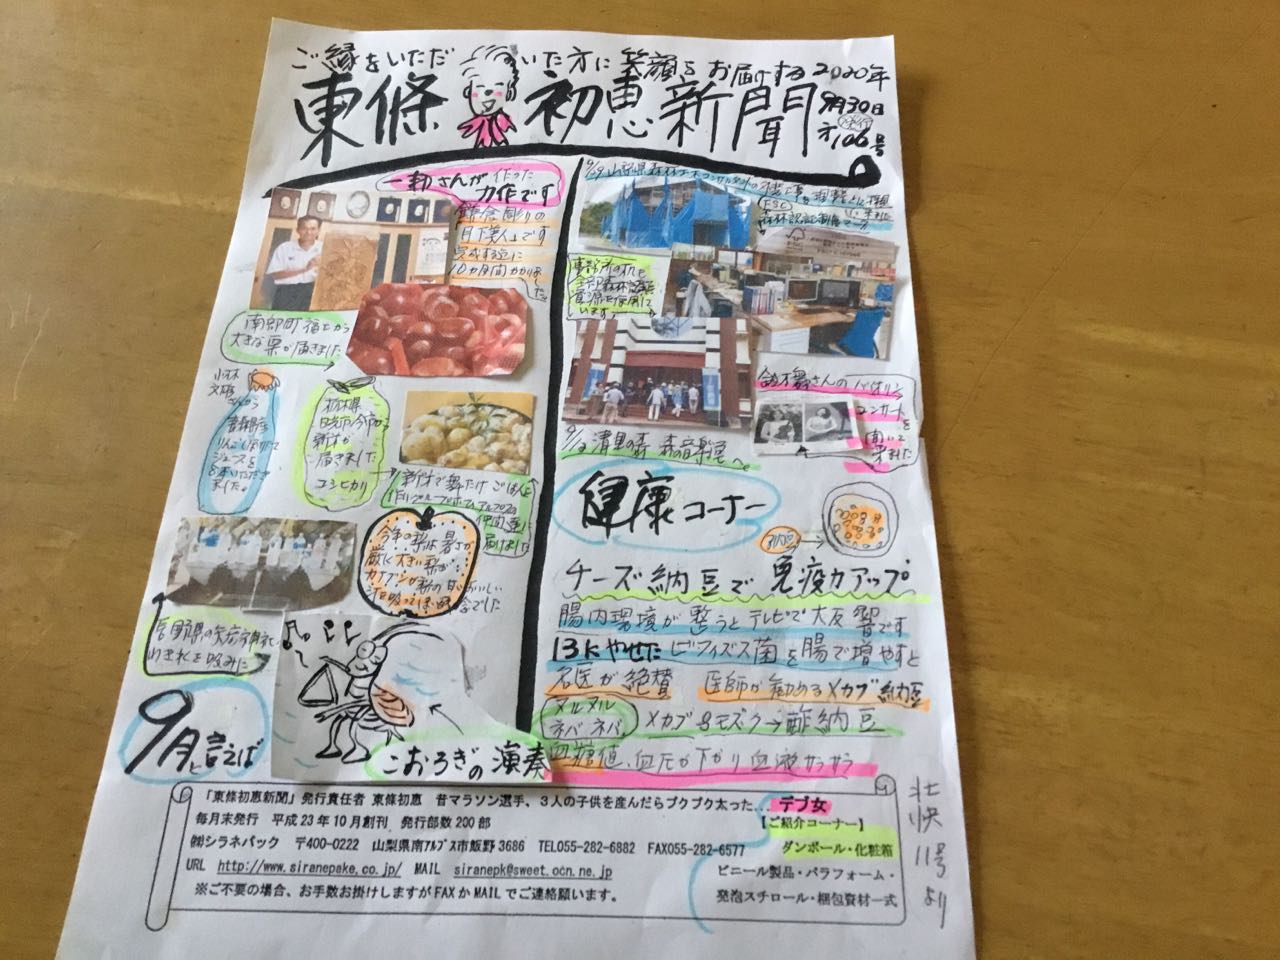 ご縁をいただいた方に笑顔をお届けする 2020年
東條初恵新聞
9月30日
発行
才106号
一和さんが作った
力作です
鎌倉彫りの
月下美人です
完成する迄に
10カ月間かかりました
南部町宿士から
大きな栗が届きました
小林
文雄
さんから
青森県産
りんごしぼりたて
ジュースを
いただき
ました。
栃木県
日光市今市から
新米が
届きました
コシヒカリ
新米で舞たけごはんを
届けました
今年の梨は暑さが
厳に大きい梨が
カブンが粉の甘いおいしい
汁を吸って
残念でした
長野県の
めきれを吸みに
9月と言えば
こおろぎの演奏
9/29 山梨県森林
FSC
森林認証制度マーク
事務所の机も
全部森林認証
資源を使用して
います。
9/12 清里の森 森の音楽堂へ
鈴木舞さんのバイオリン
コンサート
を
聞いて
来ました
健康コーナー
チーズ納豆で免疫力アップ
腸内環境が整うとテレビで大反響です
13kやせたビフィズス菌を腸で増やすと
名医が絶賛 医師が勧めるメカブ納豆
ヌルヌル
ネバネバ
メカブ&モズク→酢納豆
血糖値、血圧が下がり血液サラサラ
「東條初恵新聞」発行責任者 東條初恵 昔マラソン選手、3人の子供を産んだらブクブク太った... デブ女
毎月末発行 平成23年10月創刊 発行部数200部
【ご紹介コーナー】
㈲シラネパック 〒400-0222 山梨県南ｱﾙﾌﾟｽ市飯野3686 TEL055-282-6882 FAX055-282-6577
ダンボール・化粧箱
URL http://www.siranepake.co.jp/ MAIL siranepk@sweet.ocn.ne.jp
ビニール製品・パラフォーム・
※ご不要の場合、お手数お掛けしますがFAXかMAILでご連絡願います。
発泡スチロール・梱包資材一式
壮快11号より